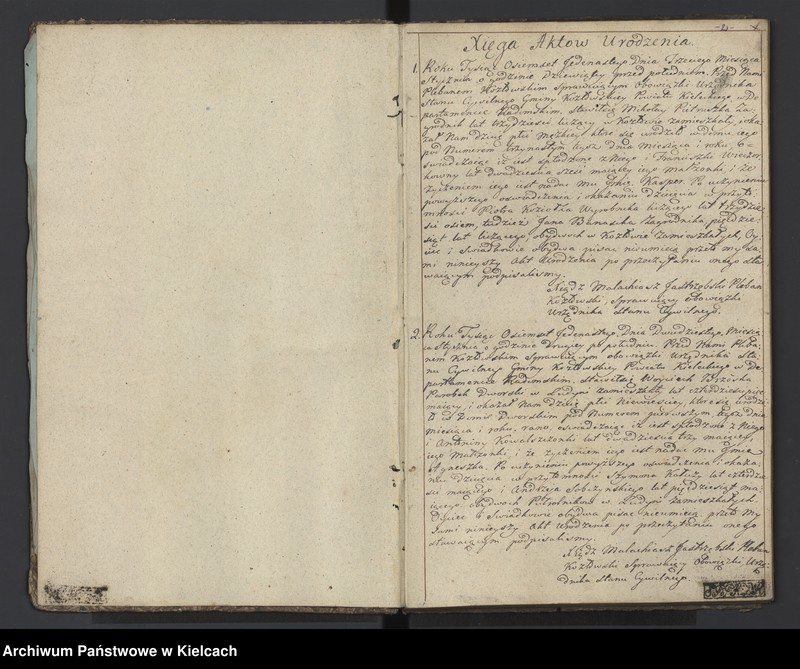 -2-
Xięga Aktow Urodzenia.
1. Roku Tysiąc Osiemset Jedenastego Dnia Trzeciego Miesiąca
Stycznia o godzinie Dziewiątey przed południem. Przed Nami
Plebanem Kozłowskim Sprawuiącym Obowiązki Urzędnika
Stanu Cywilnego Gminy Kozłowskiey Powiatu Kieleckiego w De-
partamencie Radomskim, stawił się Mikołay Pietruszka Za-
grodnik lat trzydzieści liczący w Kozłowie zamieszkały, i oka-
zał Nam dziecię płci męzkiey, które się urodziło w domu iego
pod Numerem trzynastym dnia miesiąca i roku, o-
świadczaiąc iż iest spłodzone z Niego i Franciszki Wieczor-
kowny lat dwadzieścia sześć maiącey iego małżonki, i że
życzeniem iego iest nadać mu Jmię Kasper. Po uczynieniu
powyższego oświadczenia i okazaniu dziecięcia w przyto-
mności Piotra Koziołka Wyrobnika liczącego lat trzydzie-
ści osiem, tudzież Jana Banasika Zagrodnika, pięćdzie-
siąt lat liczącego, obydwóch w Kozłowie zamieszkałych, Oy-
ciec i Swiadkowie obydwa pisać nieumieią przeto my sa-
mi ninieyszy Akt Urodzenia po przeczytaniu onego sta-
waiącym podpisaliśmy.
Xiądz Malachiasz Jastrzębski Pleban
Kozłowski, Sprawuiący obowiązki
Urzędnika stanu Cywilnego.
2. Roku Tysiąc Osiemset Jedenastego, Dnia Dwudziestego, Miesią-
ca Stycznia o godzinie drugiey po południu. Przed Nami Pleba-
nem Kozłowskim Sprawuiącym obowiązki Urzędnika Sta-
nu Cywilnego Gminy Kozłowskiey Powiatu Kieleckiego w De-
partamencie Radomskim. Stawił się Woyciech
Parobek Dworski w Ludyni zamieszkały lat czterdzieści
maiący, i okazał Nam dziecię płci Niewieściey które się urodzi-
ło w Domu Dworskim pod Numerem pierwszym dnia
miesiąca i roku, rano, oświadczaiąc iż iest spłodzone z Niego
i Antoniny Kowalczzonki lat dwadzieścia trzy maiącey,
iego Małżonki, i że życzeniem iego iest nadać mu Jmię
Agnieszka. Po uczynieniu powyższego oświadczenia i okaza-
niu dziecięcia w przytomności Szymona Kałuzy lat czterdzie-
ści maiącego i Andrzeia Sobczyńskiego lat pięćdziesiąt ma-
iącego, obydwóch Półrolników w Ludyni zamieszkałych
Oyciec i Swiadkowie obydwa pisać nieumieią, przeto My
Sami ninieyszy Akt Urodzenia po przeczytaniu onego
stawaiącym podpisaliśmy.
Xiądz Malachiasz Jastrzębski Pleban
Kozłowski Sprawuiący Obowiązki Urzę-
dnika Stanu Cywilnego.
Archiwum Państwowe w Kielcach